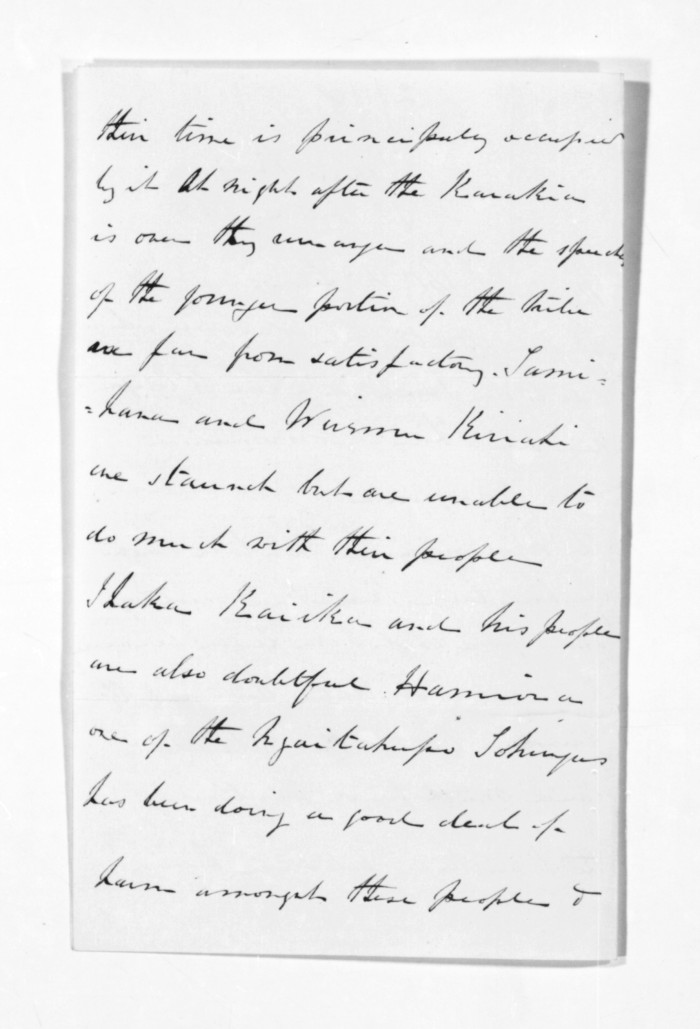 their time is principally occupied
by it At night after the Karakia
is over they and the speeches
of the younger portion of the tribe
are far from satisfactory. Tami=
=hana and Wiremu Kiriahi
are staunch but are unable to
do much with their people
Ihaka Kaiika and his people
are also doubtful. Hamiora
one of the Ngaitahupo Tohungas
has been doing a good deal of
harm amongst these people &